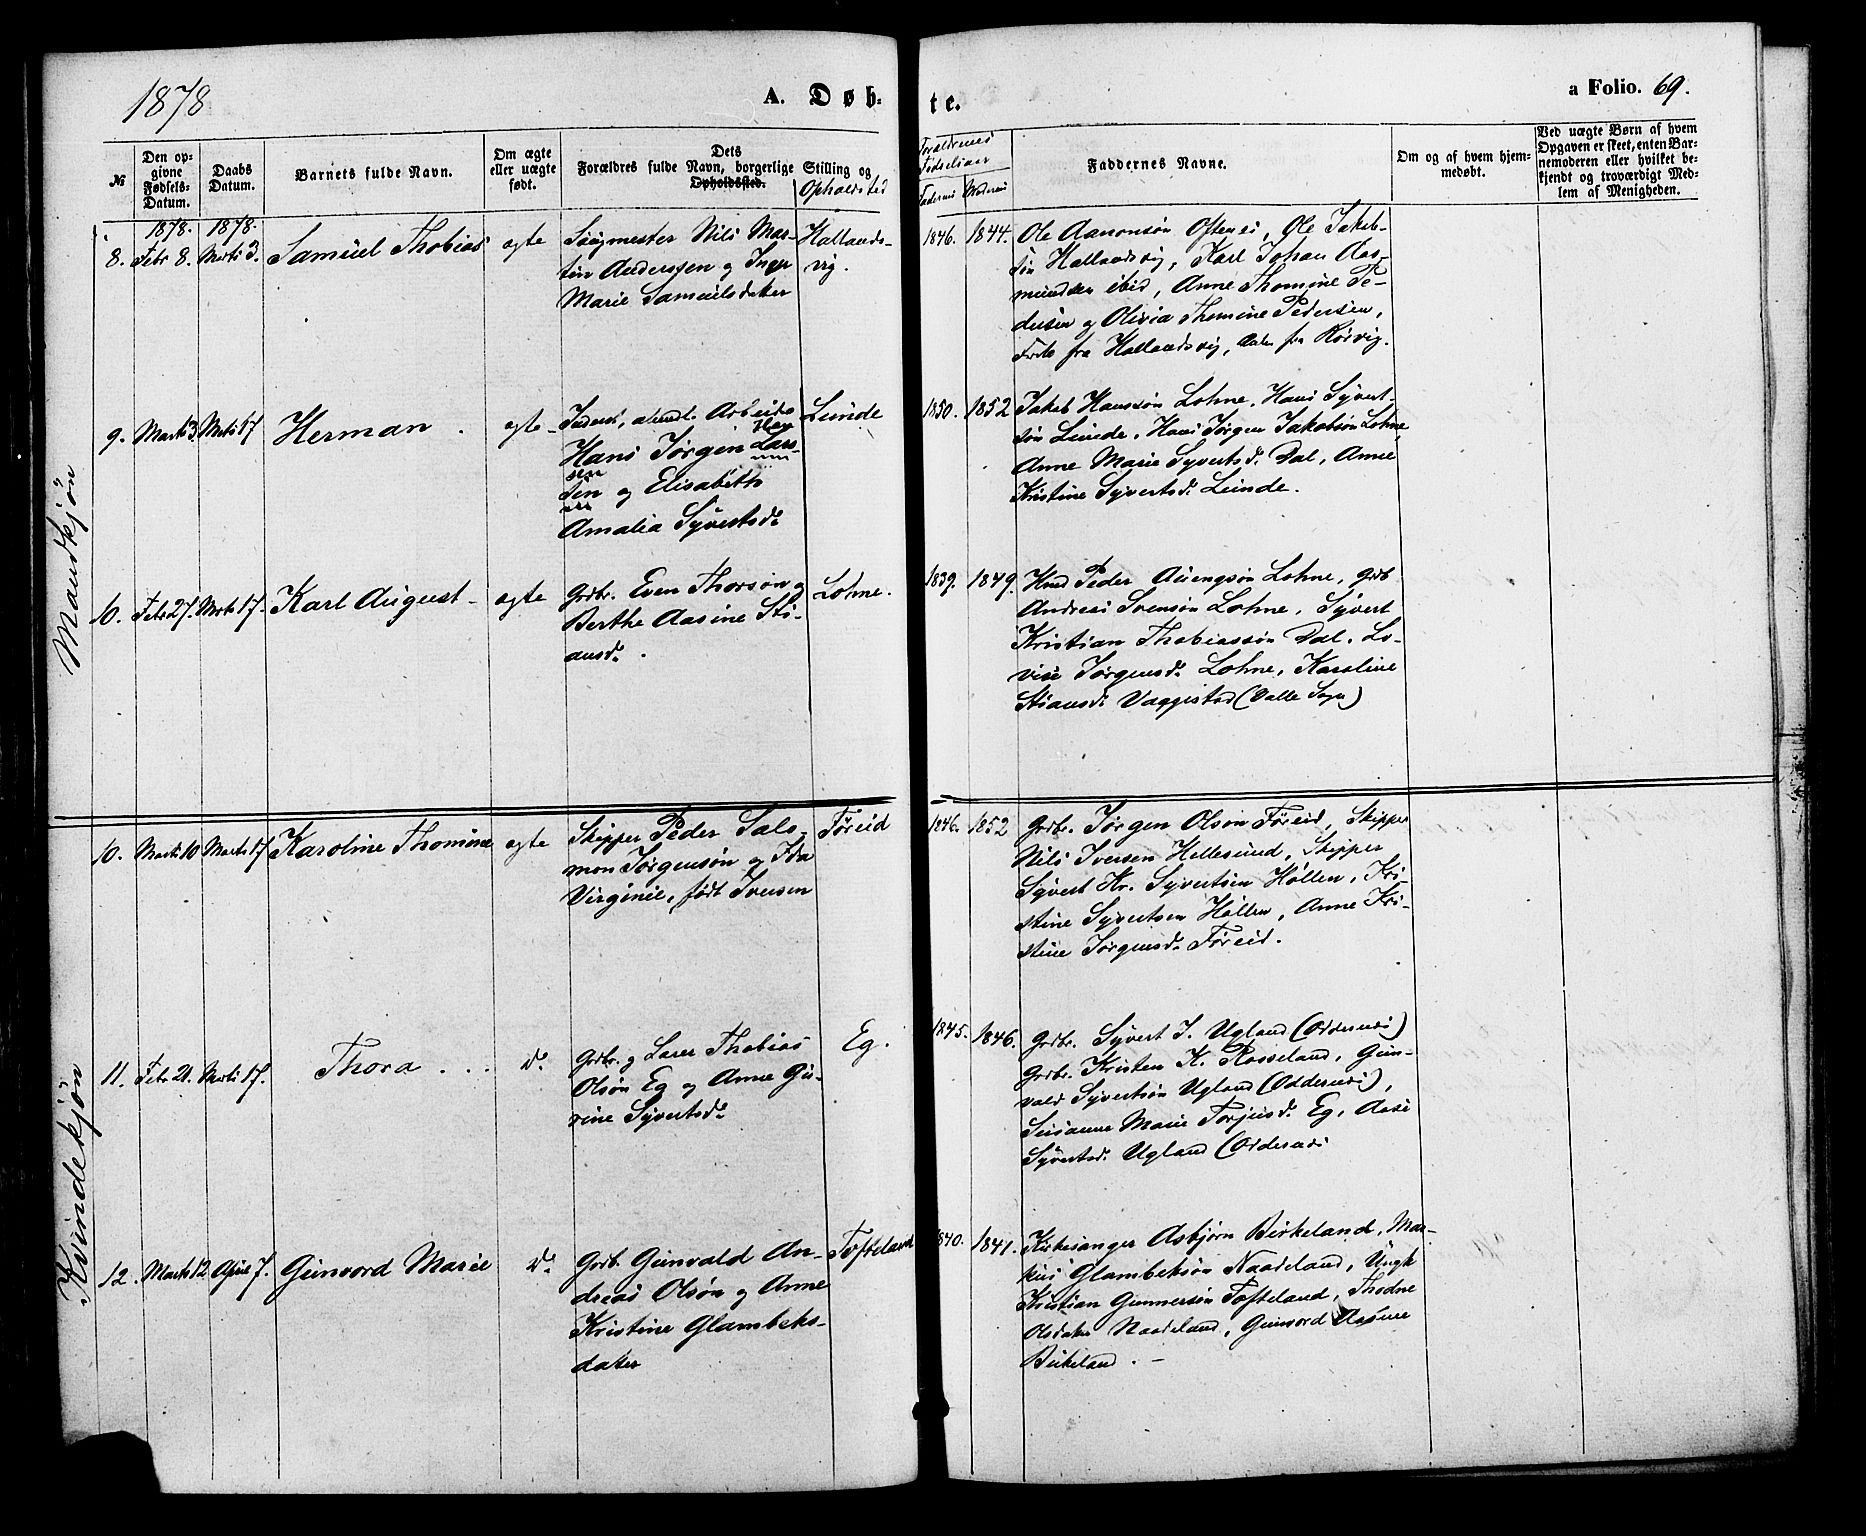 1878
A. Døb-
te.
a Folio. 69.
№
Den op-
givne
Fødsels-
Datum.
Daabs
Datum.
Barnets fulde Navn.
Om ægte
eller uægte
født.
Dets
Forældres fulde Navn, borgerlige Stilling og
Opholdsted.
Opholdsted
Forældrenes
Fødselsaar
Faderens Moderens
Faddernes Navne.
Om og af hvem hjem-
medøbt.
Ved uægte Børn af hvem
Opgaven er skeet, enten Bar-
nemoderen eller hvilket be-
kjendt og troværdigt Med-
lem af Menigheden.
Mandkjøn
1878. 1878.
8. Febr 8. Marts 3. Samuel Thobias ægte
Nils Mar-
tin Anderssen og Inger
Marie Samuelsdatter
Hallands-
vig.
1846. 1844.
Ole Aanonsøn Oftenes, Ole Jakob-
søn Hallandsvig, Karl Johan Aas-
mundsen ibid, Anne Thomine Pe-
dersen og Olivia Thomine Pedersen,
fra Hallandsvig, fra Rørvig.
9. Marts 3. Marts 17 Herman . ægte
Arbeids
Hans Jørgen Lars-
sen
søn og Elisabeth
Amalia Syvertsd.
Lunde
1850. 1852
Jakob Hanssøn Lohne, Hans Syvert-
søn Lunde, Hans Jørgen Jakobsøn Lohne
Anne Marie Syvertsd. Dal, Anne
Kristine Syvertsd. Lunde.
10. Febr 27. Marts 17. Karl August ægte
Grdbr. Even Thorsøn og
Berthe Aasine Sti-
ansd.
Lohne.
1839. 1849.
Knud Peder Auengsøn Lohne, Grdb
Andreas Svensøn Lohne, Syvert
Kristian Thobiassøn Dal, Lo-
vise Jørgensd. Lohne, Karoline
Stiansd. Vaggestad (Valle Sogn)
Kvindekjøn
10. Marts 10 Marts 17 Karoline Thomine ægte
Skipper Peder Salo-
mon Jørgensøn og Ida
Virginie, født Iversen
Føreid
1846. 1852
Grdbr. Jørgen Olsøn Føreid, Skipper
Nils Iversen Hellesund, Skipper
Syvert Kr. Syvertsen Høllen, Kri-
stine Syvertsen Høllen, Anne Kri-
stine Jørgensd. Føreid.
11. Febr 21. Marts 17. Thora . . . do.
Grdbr. og Lærer Thobias
Olsøn Eg og Anne Gu-
rine Syvertsd.
Eg.
1845. 1846.
Grdbr. Syvert J. Ugland (Oddernæs)
Grdbr. Kristen K. Rosseland, Gun-
vald Syvertsøn Ugland (Oddernæs),
Susanne Marie Torjusd. Eg, Aase
Syvertsd. Ugland (Oddernæs
12. Marts 12 April 7. Gunvord Marie do.
Grdb. Gunvald An-
dreas Olsøn og Anne
Kristine Glambeks-
datter
Tofteland
1840. 1841.
Kirkesanger Asbjørn Birkeland, Mar-
kus Glambeksøn Naadeland, Ungk
Kristian Gunnersøn Tofteland, Thodne
Olsdatter Naadeland, Gunvord Aasine
Birkeland. –